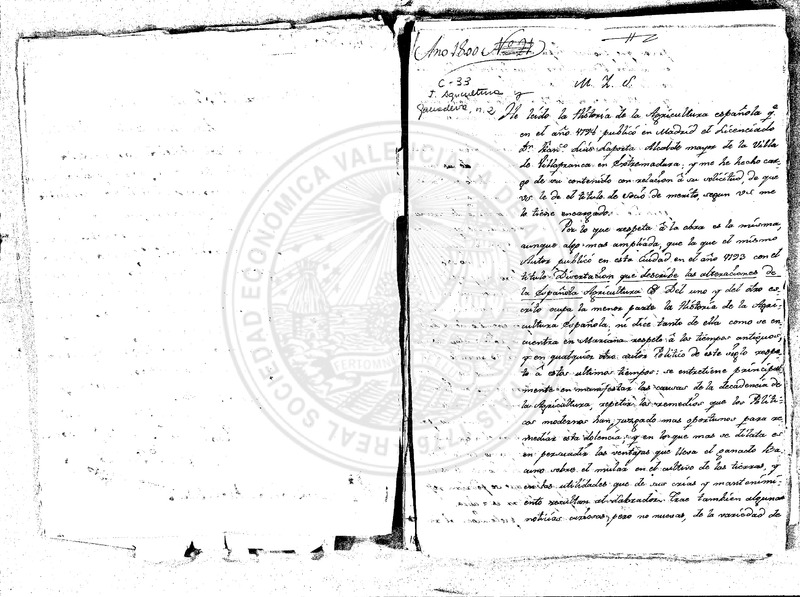 Año 1800 Nº 21
C-33
I. Agricultura y
Ganaderia, n. 2
M. I. S.
He leido la Historia de la Agricultura española qe
en el año 1794 publicó en Madrid el Licenciado
Dn. Franco. Luis Laporta Alcalde mayor de la Villa
de Villafranca en Extremadura; y me he hecho car-
go de su contenido con relacion á su solicitud, de que
VS. le dé el titulo de Socio de merito, segun VS. me
lo tiene encargado.
Por lo que respeta á la obra es la misma,
aunque algo mas ampliada, que la que el mismo
Autor publicó en esta Ciudad en el año 1793 con el
titulo Disertacion que describe las alteraciones de
la Española Agricultura &. Del uno y del otro es-
crito ocupa la menor parte la Historia de la Agri-
cultura Española, ni dice tanto de ella como se en-
cuentra en Mariana respeto á los tiempos antiguos,
y en qualquier otro autor Politico de este siglo respe-
to á estos ultimos tiempos: se entretiene principal-
mente en manifestar las causas de la decadencia de
la Agricultura, repetir los remedios que los Politi-
cos modernos han juzgado mas oportunos para re-
mediar esta dolencia; y en lo que mas se dilata es
en persuadir las ventajas que lleva el ganado ba-
cuno sobre el mular en el cultivo de las tierras, y
en las utilidades que de sus crias y mantenimi-
ento resultan al labrador. Trae tambien algunas
noticias curiosas, pero no nuevas, de la variedad de